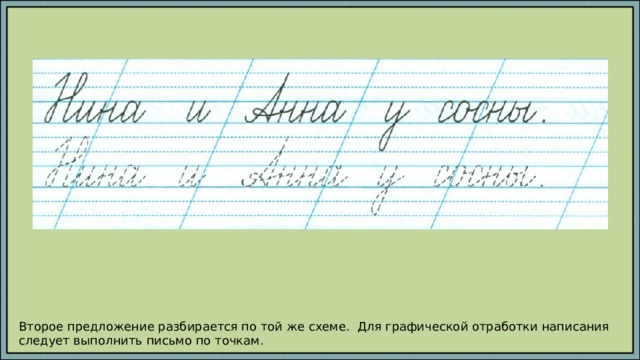 Нина и Анна у сосны.
Нина и Анна у сосны.
Второе предложение разбирается по той же схеме. Для графической отработки написания
следует выполнить письмо по точкам.